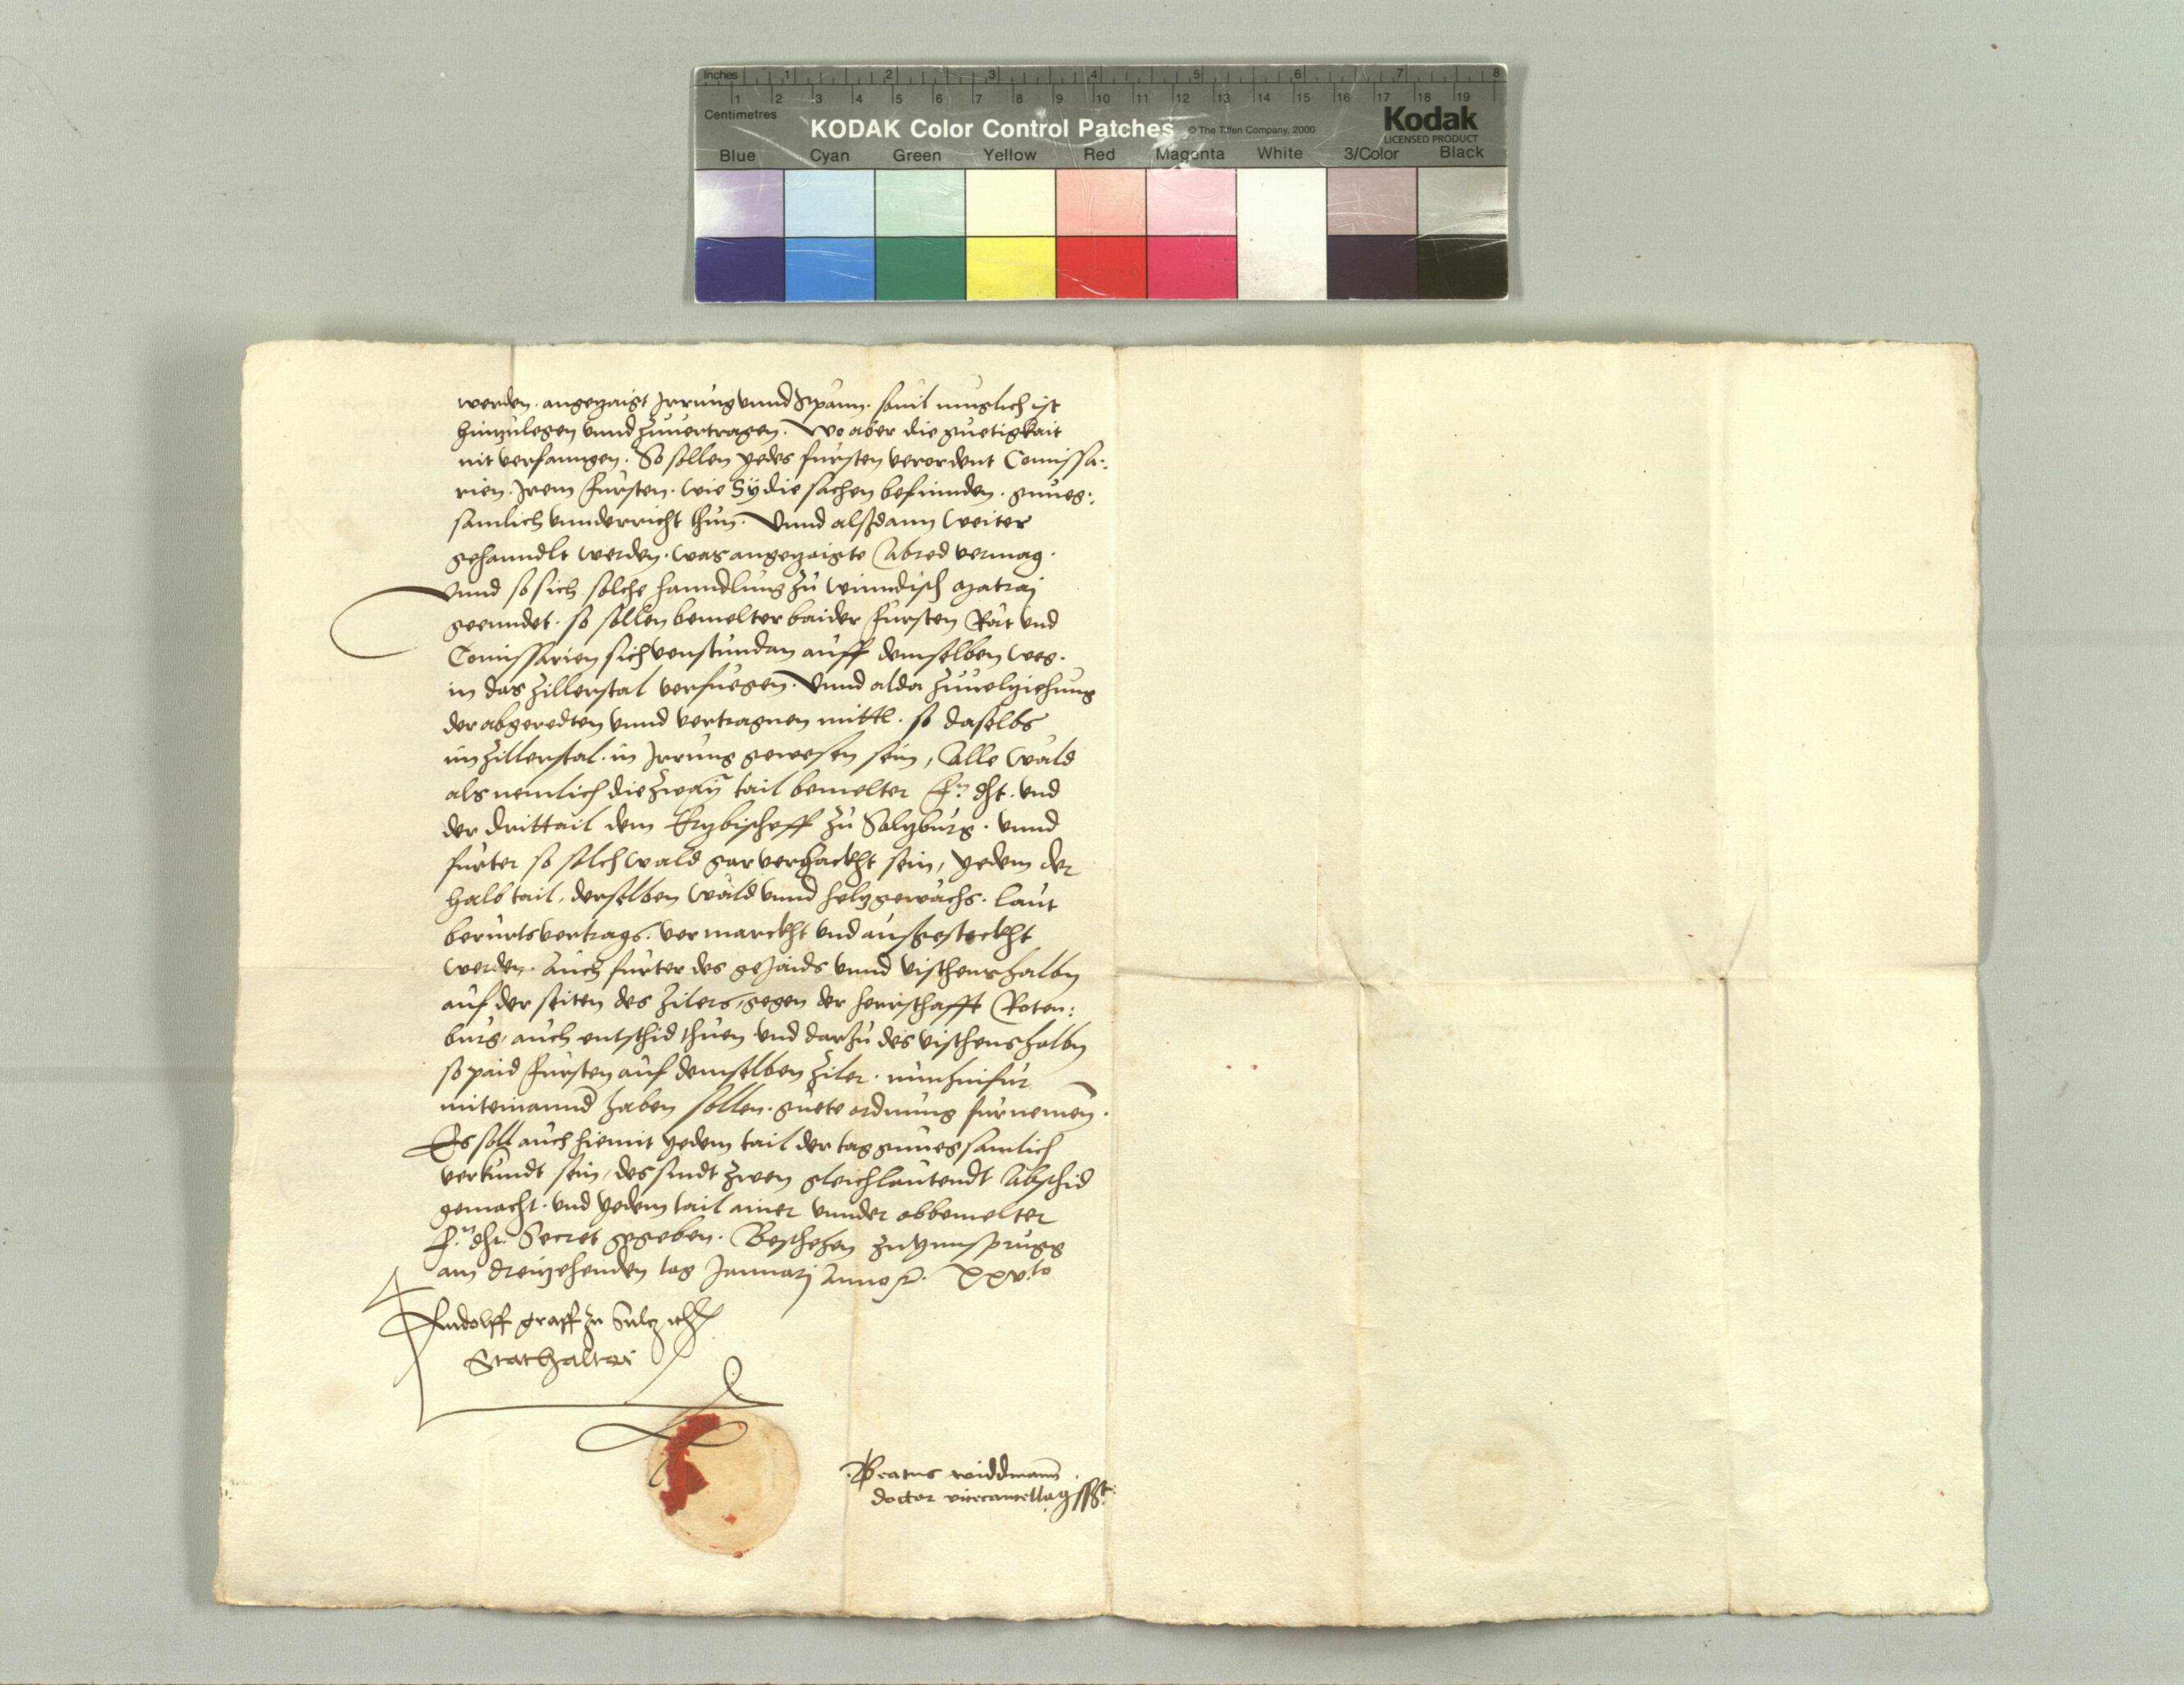 Inches 1 2 3 4 5 6 7 8
1 2 3 4 5 6 7 8 9 10 11 12 13 14 15 16 17 18 19
Centimetres
KODAK Color Control Patches © The Tiffen Company, 2000 Kodak
LICENSED PRODUCT
Blue Cyan Green Yellow Red Magenta White 3/Color Black
werden. angezaigt Irrung vnnd Spänn. souil muglich ist
hinzulegen vnnd zuuertragen. Wo aber die guetigkait
nit verfanngen. So sollen yedes fursten verordent Comissa:
rien. Irem Fursten. wie Sy die sachen befinnden. gnueg:
samlich vnnderricht thun. Vnnd alßdann weiter
gehanndlt werden. was angezaigte Abred vermag.
Vnnd so sich solche hanndlung zu winndisch Matraj
geenndet. so sollen bemelter baider Fursten Rät vnd
Comissarien sich von stundan auff demselben weg.
in das Zillerstal verfuegen. Vnnd alda zuuolziehung
der abgeredten vnnd vertragnen mittl. so daselbs
im Zillerstal. in Irrung gewesen sein, Alle wäld
als nemlich die zway tail bemelter F.n dht. vnd
der drittail dem Ertzbischoff zu Saltzburg. vnnd
furter so solch wäld gar verhackht sein, yedem der
halb tail, derselben wäld vnnd holtzgewächs. laut
berurts vertrags. vermarckht vnd außgesteckht
werden. Auch furter des gejaids vnnd vischens halbn
auf der seiten des Zilers, gegen der herrschafft Roten:
burg, auch entschid thuen vnd darzu des vischens halbn
so paid Fursten auf demselben Ziler. nun hinfur
miteinannd haben sollen. guete ordnung furnemen.
Es soll auch hiemit yedem tail der tag gnuegsamlich
verkundt sein, des sindt zwen gleichlautendt Abschid
gemacht. vnd yedem tail ainer vnnder obbemelter
F.n dht. Secret gegeben. Beschehen zu Ynnsprugg
am dreizehenden tag Januarj Anno XXV.to
Rudolff graff zu Sulz
Stathalter
Beatus widdmann
doctor vicecancellarius